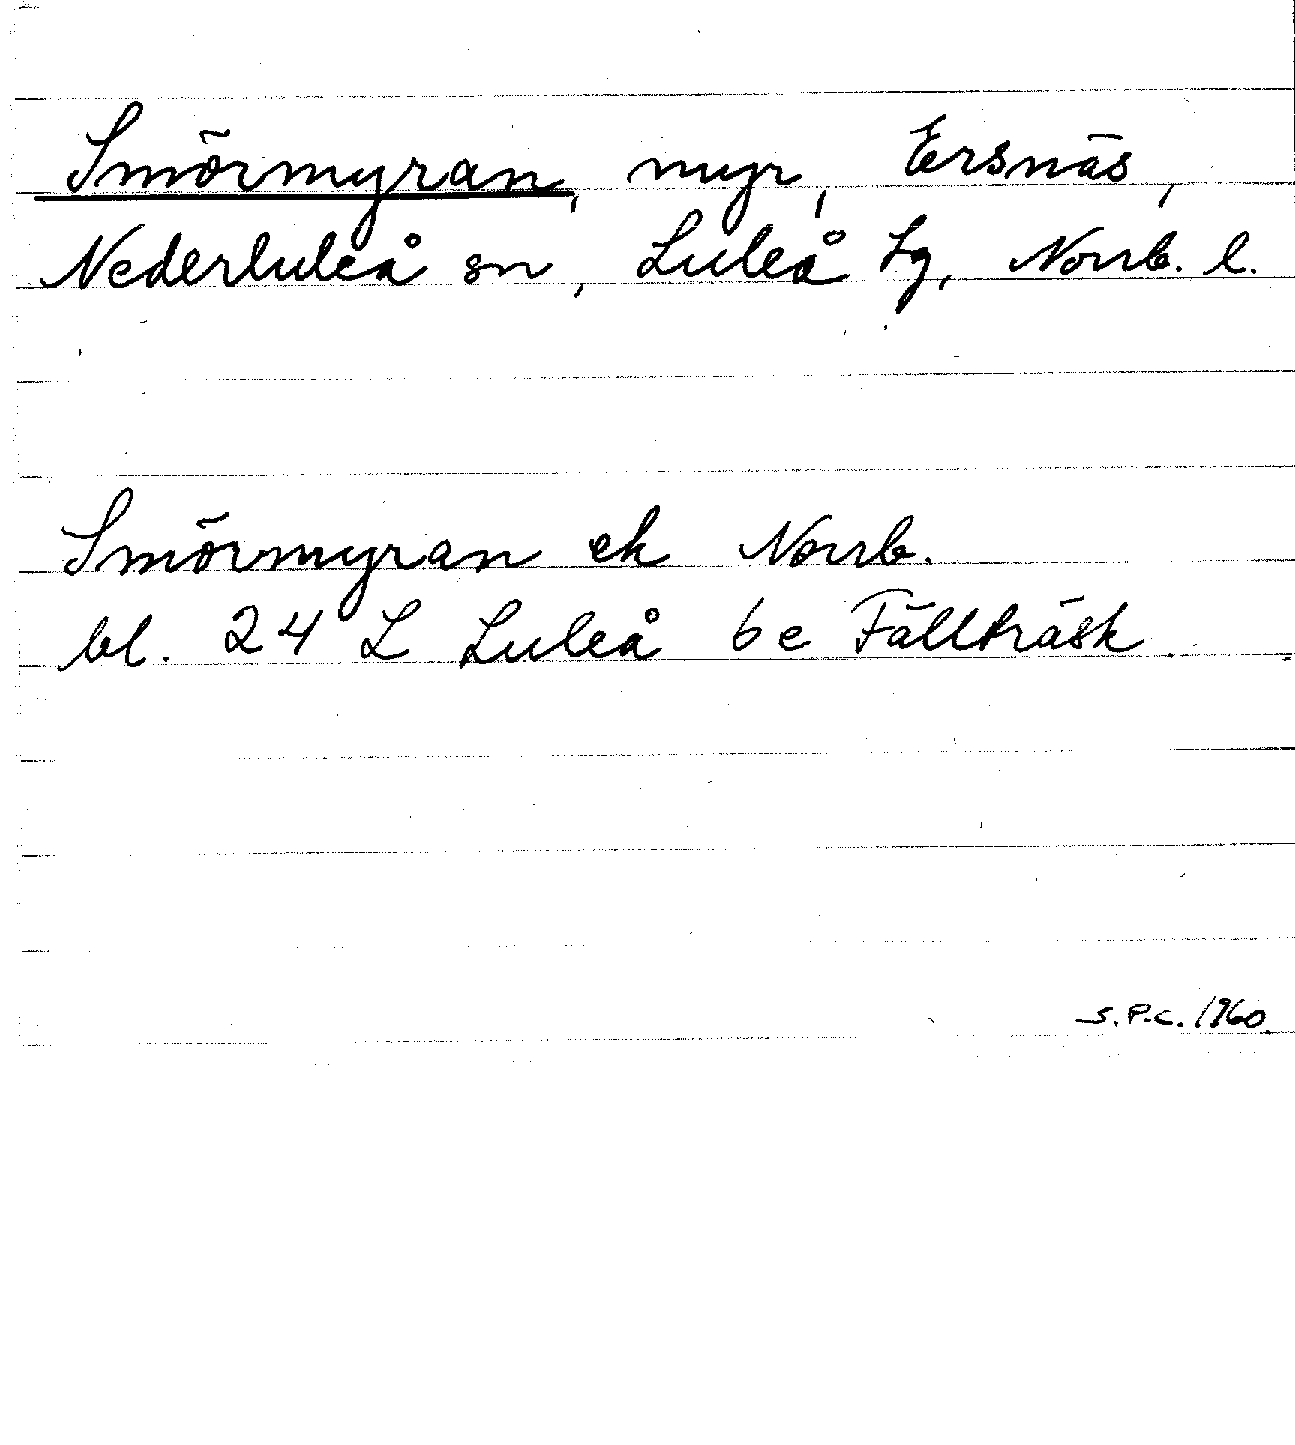 Smörmyran, myr, Ersnäs,
Nederluleå sn, Luleå tg, Norrb. l.
Smörmyran ek Norrb.
bl. 24 L Luleå 6e Fällträsk
S.P.C. 1960.